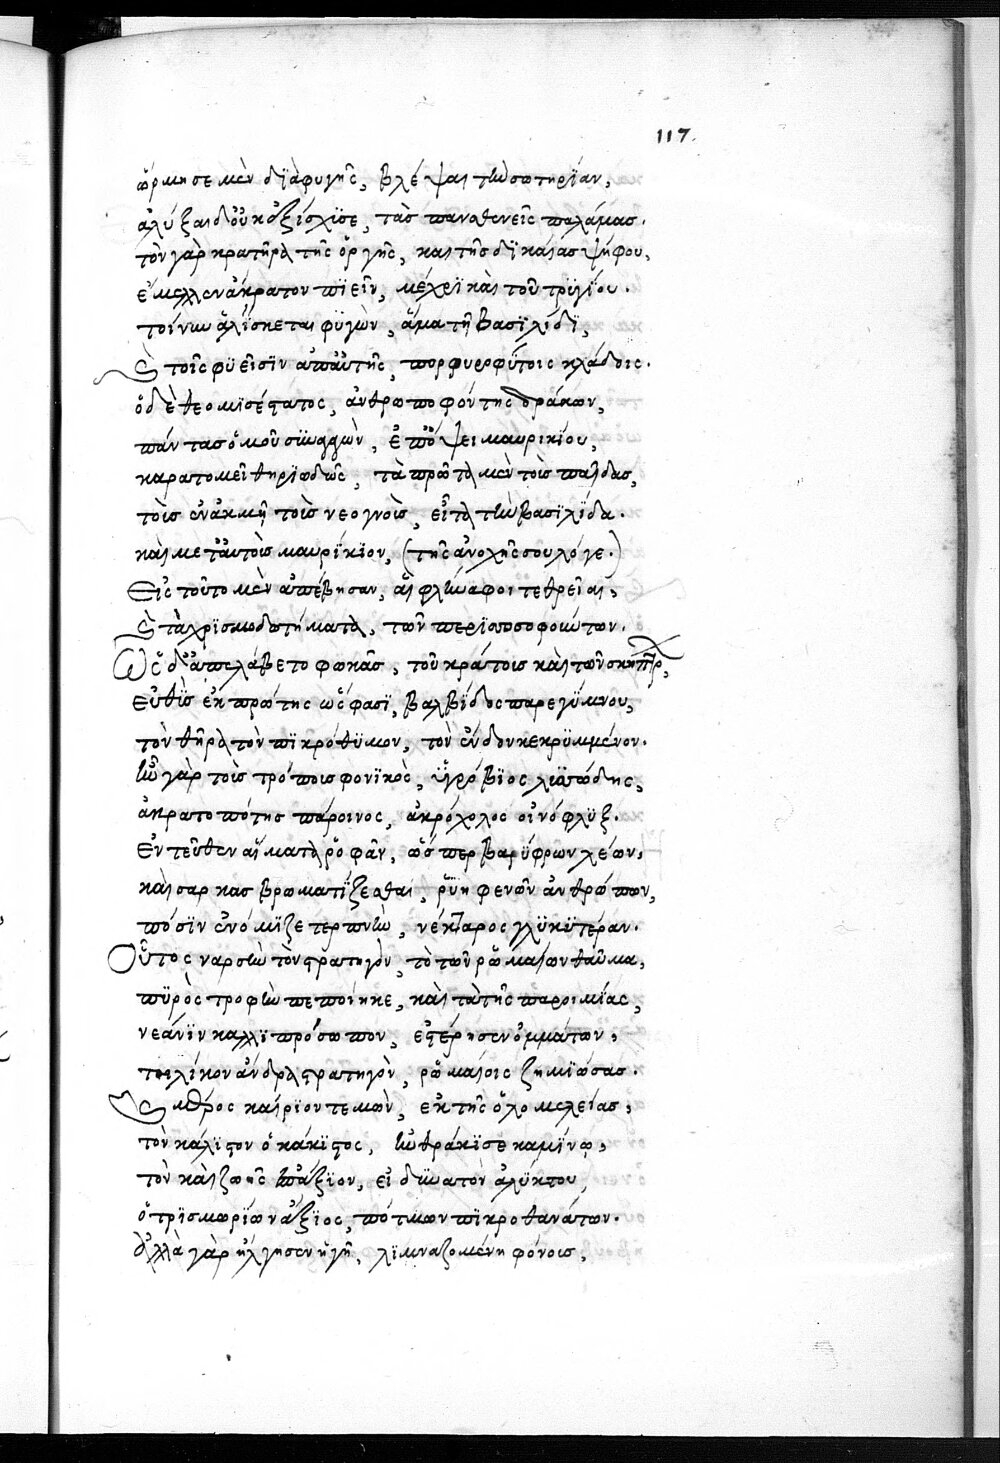 117.
ὥρμησε μὲν διὰ φυγῆς, βλέψαι τὴν σωτηρίαν,
ἀλύξαι δ' οὐκ ἐξίσχϋσε, τὰς παναθενεῖς παλάμας.
τὸν γὰρ κρατῆρα τῆς ὀργῆς, καὶ τῆς δικαίας ψήφου,
ἔμελλεν ἄκρατον πιεῖν, μέχρι καὶ τοῦ τρϋγίου.
τοίνυν ἁλίσκεται φϋγὼν, ἅμα τῇ βασιλίδι,
καὶ τοῖς φϋεῖσιν ἀπ' αὐτῆς, πορφυρφύτοις κλάδοις.
ὁ δὲ θεομισέστατος, ἀνθρωποφόντης δράκων,
πάντας ὁμοῦ συλλαβὼν, ἐπ' ὄψει μαυρικίου,
καρατομεῖ θηριωδῶς, τὰ πρῶτα μὲν τοὺς παῖδας,
τοὺς ἐν ἀκμῇ τοὺς νεογνοὺς, εἶτα τὴν βασιλίδα.
καὶ μετ' αὐτοὺς μαυρίκιον, (τῆς ἀνοχῆς σου λόγε.)
Εἰς τοῦτο μὲν ἀπέβησαν, αἱ φλήναφοι τεθρεῖαι,
καὶ τὰ χρισμωδοτήματα, τῶν περϊττοσοφούντων.
Ὡς δ' ἀπελάβετο φωκᾶς, τοῦ κράτους καὶ τῶν σκήπτρ,
εὐθὺς ἐκ πρώτης ὥς φασϊ, βαλβίδος παρεγύμνου,
τὸν θῆρα τὸν πικρόθυμον, τὸν ἔνδον κεκρυμμένον.
ἦν γὰρ τοὺς τρόπους φονικὸς, ὑγρόβιος λιπώδης,
ἀκρατοπότης πάροινος, ἀκρόχολος οἰνόφλυξ.
Ἐντεῦθεν αἵματα ῥοφᾶν, ὥσπερ βαρύφρων λέων,
καὶ σάρκας βρωματίζεσθαι, ῥυηφενῶν ἀνθρώπων,
πόσιν ἐνόμιζε τερπνὴν, νέκταρος γλυκυτέραν.
Οὗτος ναρσὴν τὸν στρατηγὸν, τὸ τῶν ῥωμαίων θαῦμα,
πϋρὸς τροφὴν πεποίηκε, καὶ τὰ τῆς παροιμίας,
νεάνϊν καλλιπρόσωπον, ἐστέρησεν ὀμμάτων,
τηλίκον ἄνδρα στρατηγὸν, ῥωμαίοις ζημιώσας.
καὶ μέρος καίριον τεμὼν, ἐκ τῆς ὁλομελείας,
τὸν κάλιστον ὁ κάκιστος, ἠνθράκισε καμίνῳ,
τὸν καὶ ζωῆς ἐπάξιον, εἰ δυνατὸν ἀλύκτου,
ὁ τρισμυρίων ἄξιος, πότμων πικροθανάτων.
ἀλλὰ γὰρ ἤλγησεν ἡ γῆ, λιμναζομένη φόνοις,